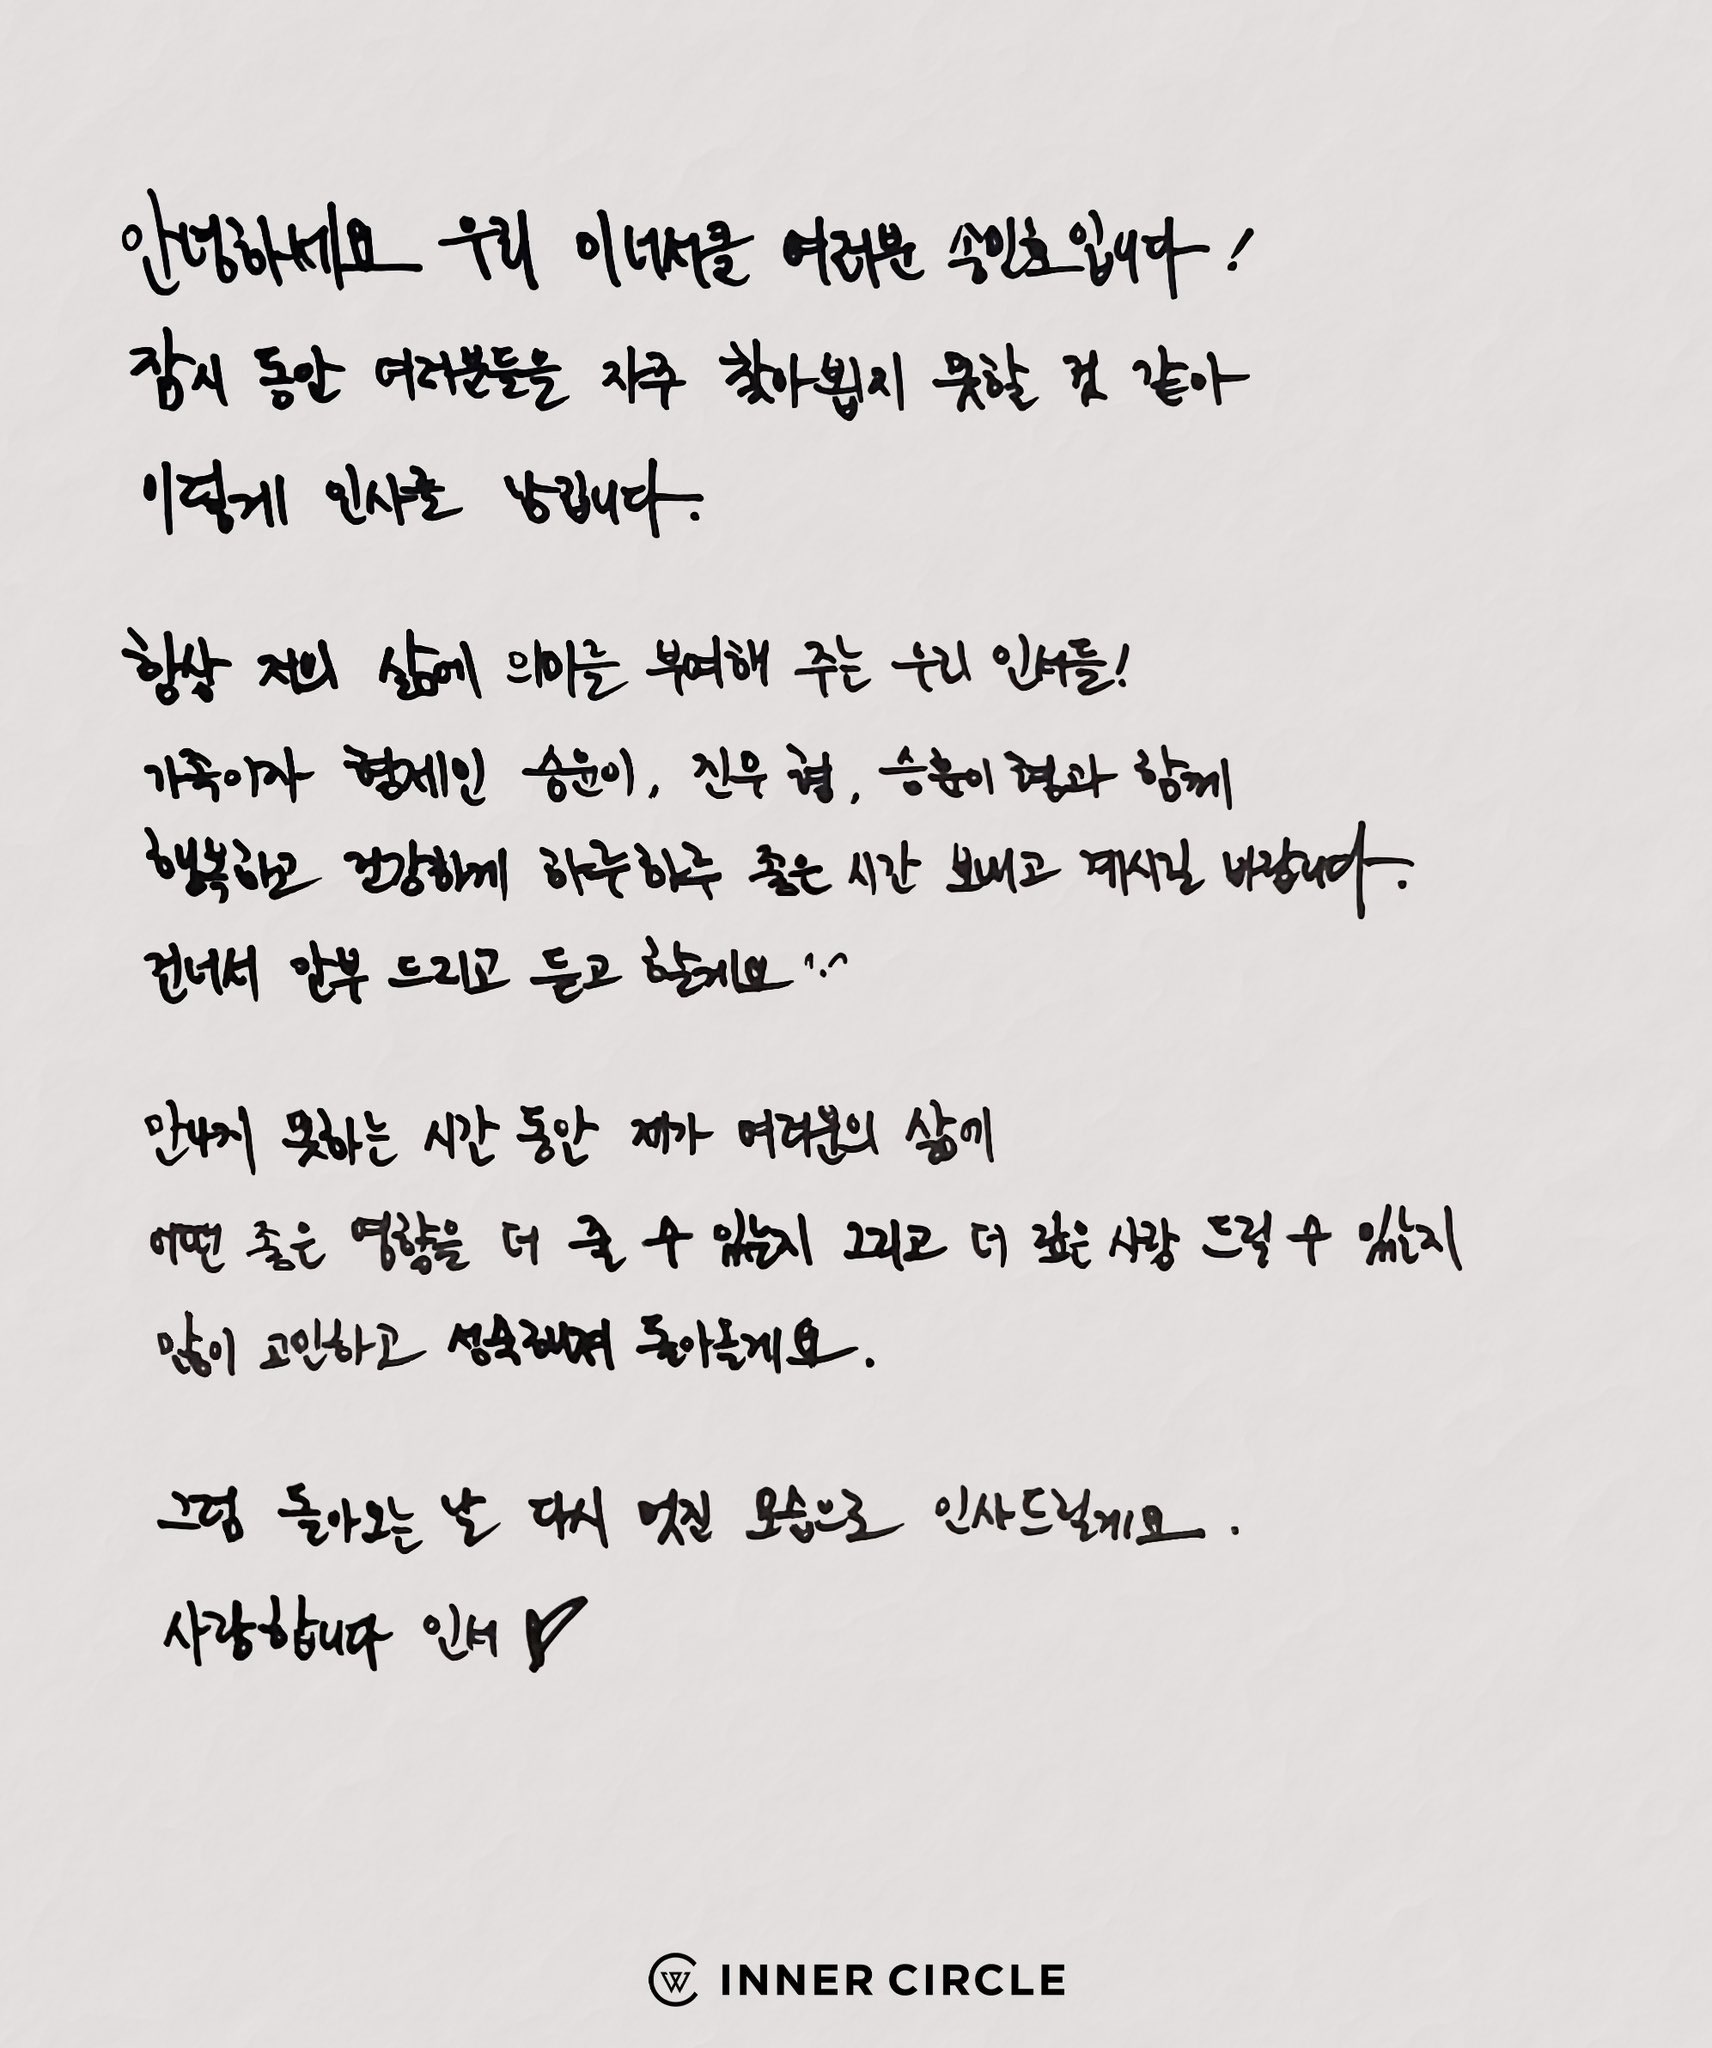 안녕하세요 우리 이너서클 여러분 송민호입니다!
잠시 동안 여러분들을 자주 찾아뵙지 못할 것 같아
이렇게 인사를 남깁니다.
항상 저의 삶에 의미를 부여해 주는 우리 인서들!
가족이자 형제인 승윤이, 진우 형, 승훈이 형과 함께
행복하고 건강하게 하루하루 좋은 시간 보내고 계시길 바랍니다.
건너서 안부 드리고 듣고 할게요 ^.^
만나지 못하는 시간 동안 제가 여러분의 삶에
어떤 좋은 영향을 더 줄 수 있는지 그리고 더 깊은 사랑 드릴 수 있는지
많이 고민하고 성숙해져 돌아올게요.
그럼 돌아오는 날 다시 멋진 모습으로 인사드릴게요.
사랑합니다 인서 ♡
INNER CIRCLE